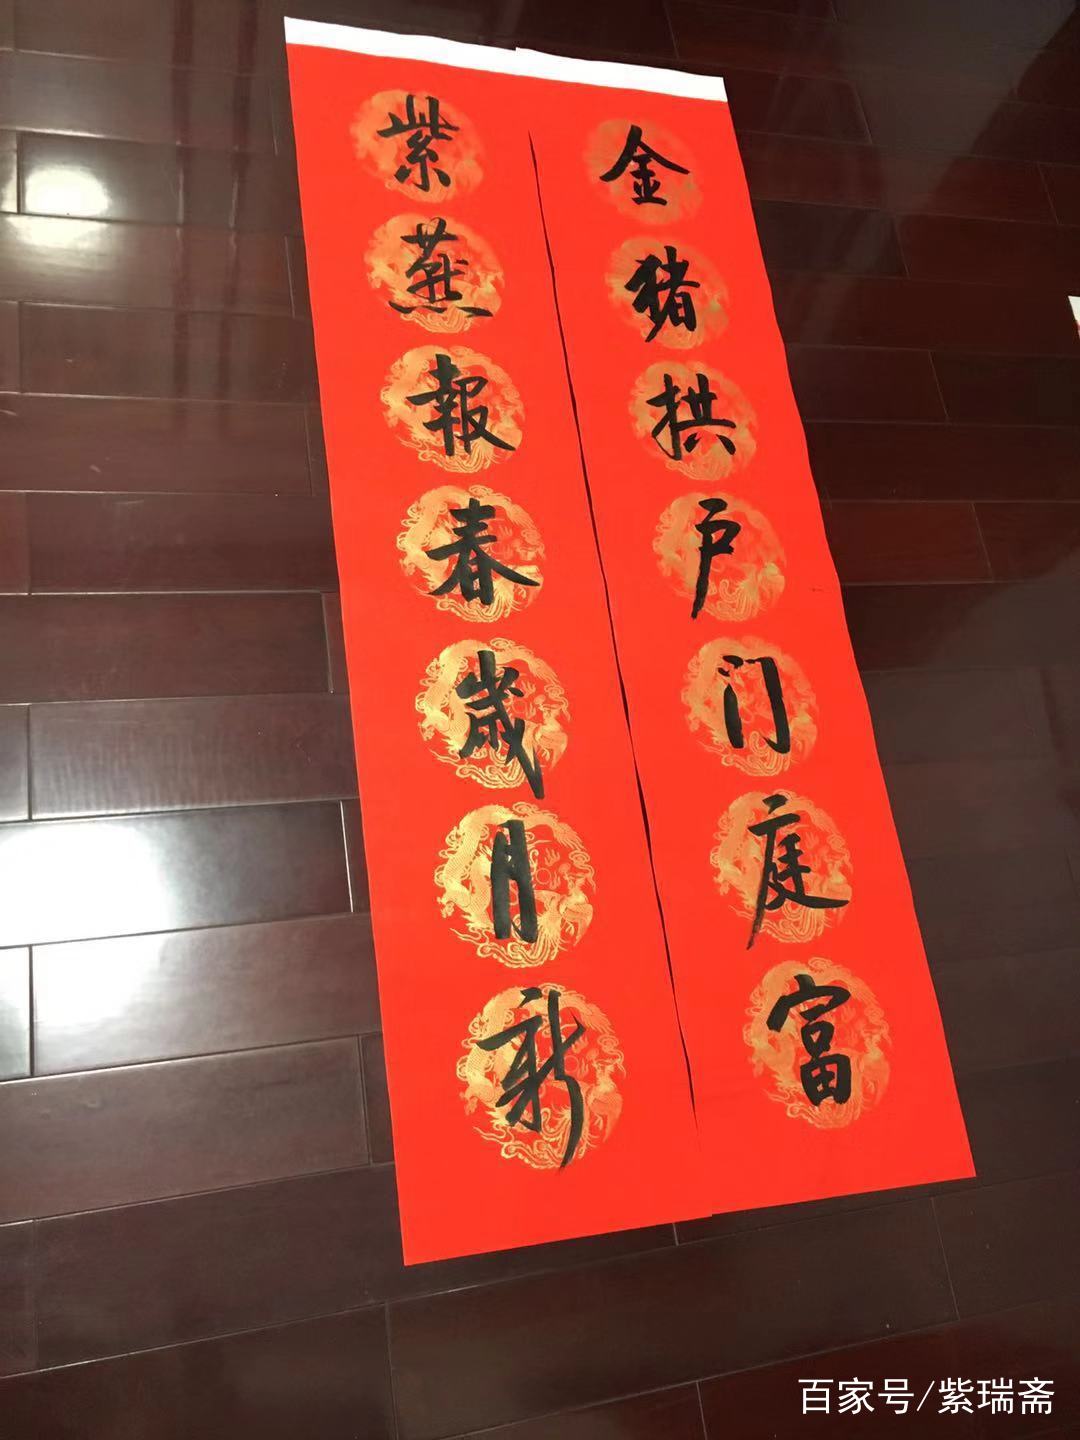 金猪拱户门庭富
紫燕報春歲月新
百家号/紫瑞斋